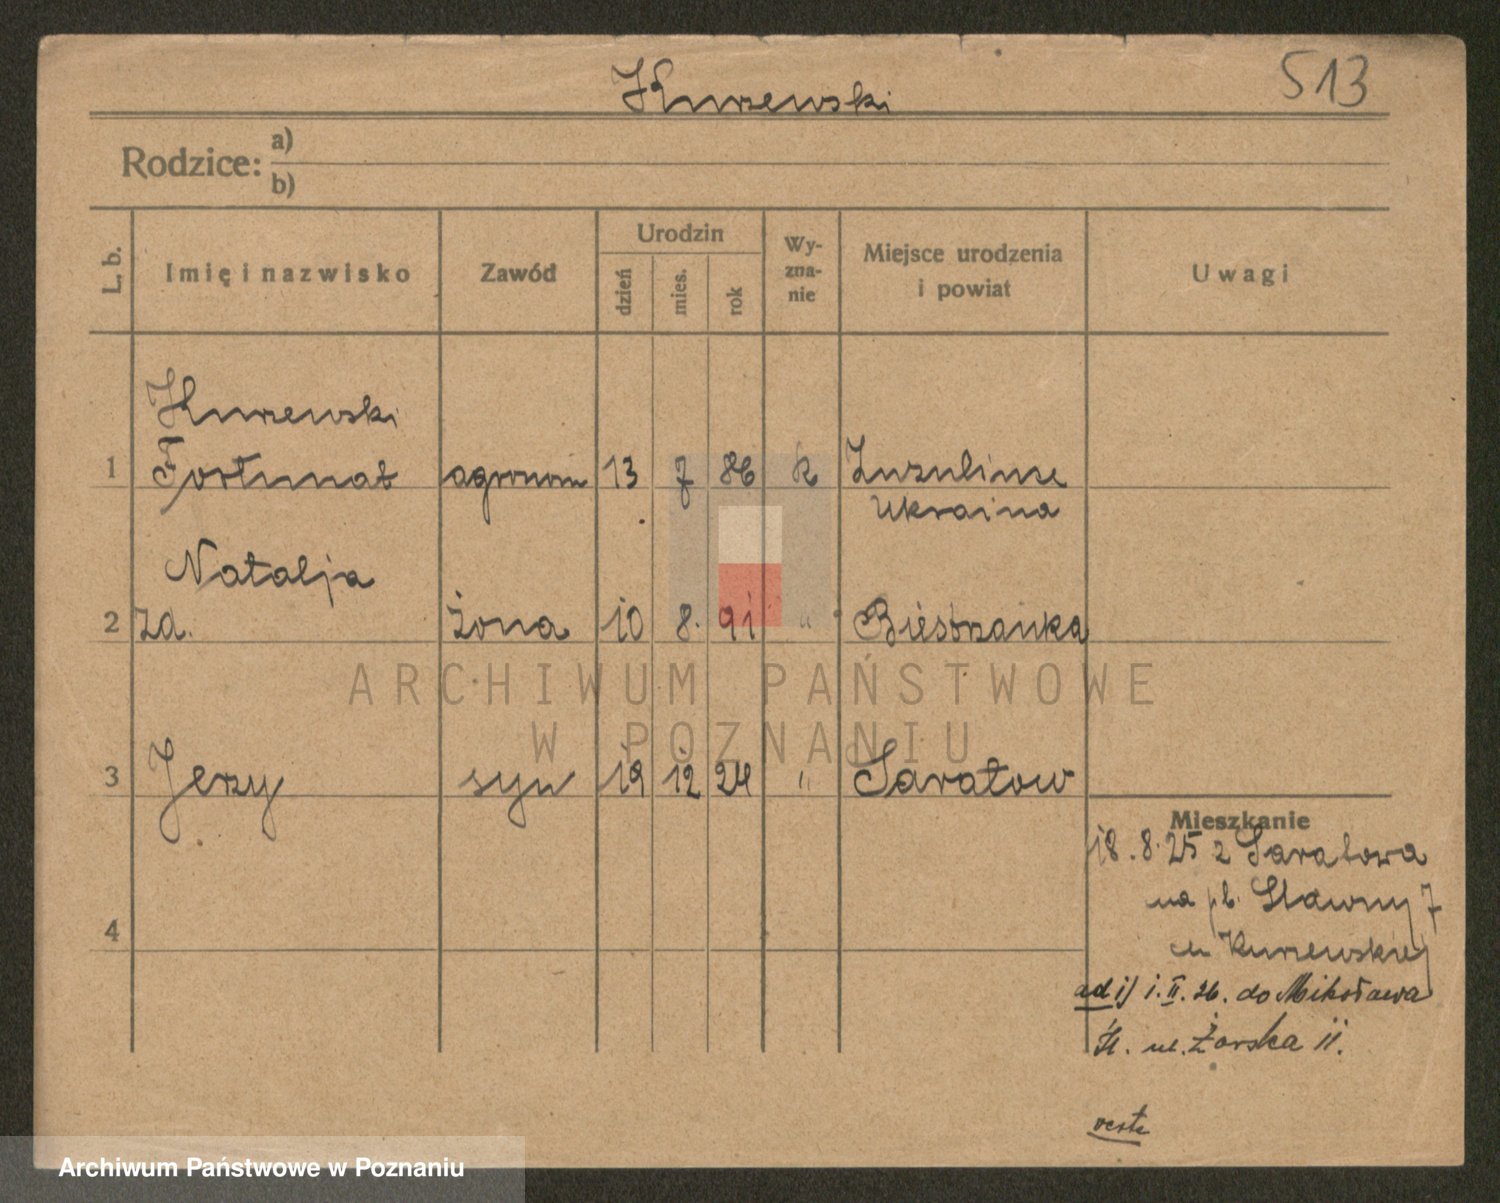 Kurzewski
513
Rodzice:
a)
b)
L. b.
Imię i nazwisko
Zawód
Urodzin
dzień
mies.
rok
Wy-
zna-
nie
Miejsce urodzenia
i powiat
Uwagi
Kurzewski
1 Fortunat agronom 13 7 86 k
Ukraina
Natalja
2 za. żona 10 8. 91 "
3 Jerzy syn 19 12 24 " Saratow
4
Mieszkanie
18.8.25 z Saratowa
na pl. Sławny 7
Kurzewskiej
ad 1) 1.II.26. do Mikołowa
Śl. ul. Żorska 11.
verte
ARCHIWUM PAŃSTWOWE
W POZNANIU
Archiwum Państwowe w Poznaniu